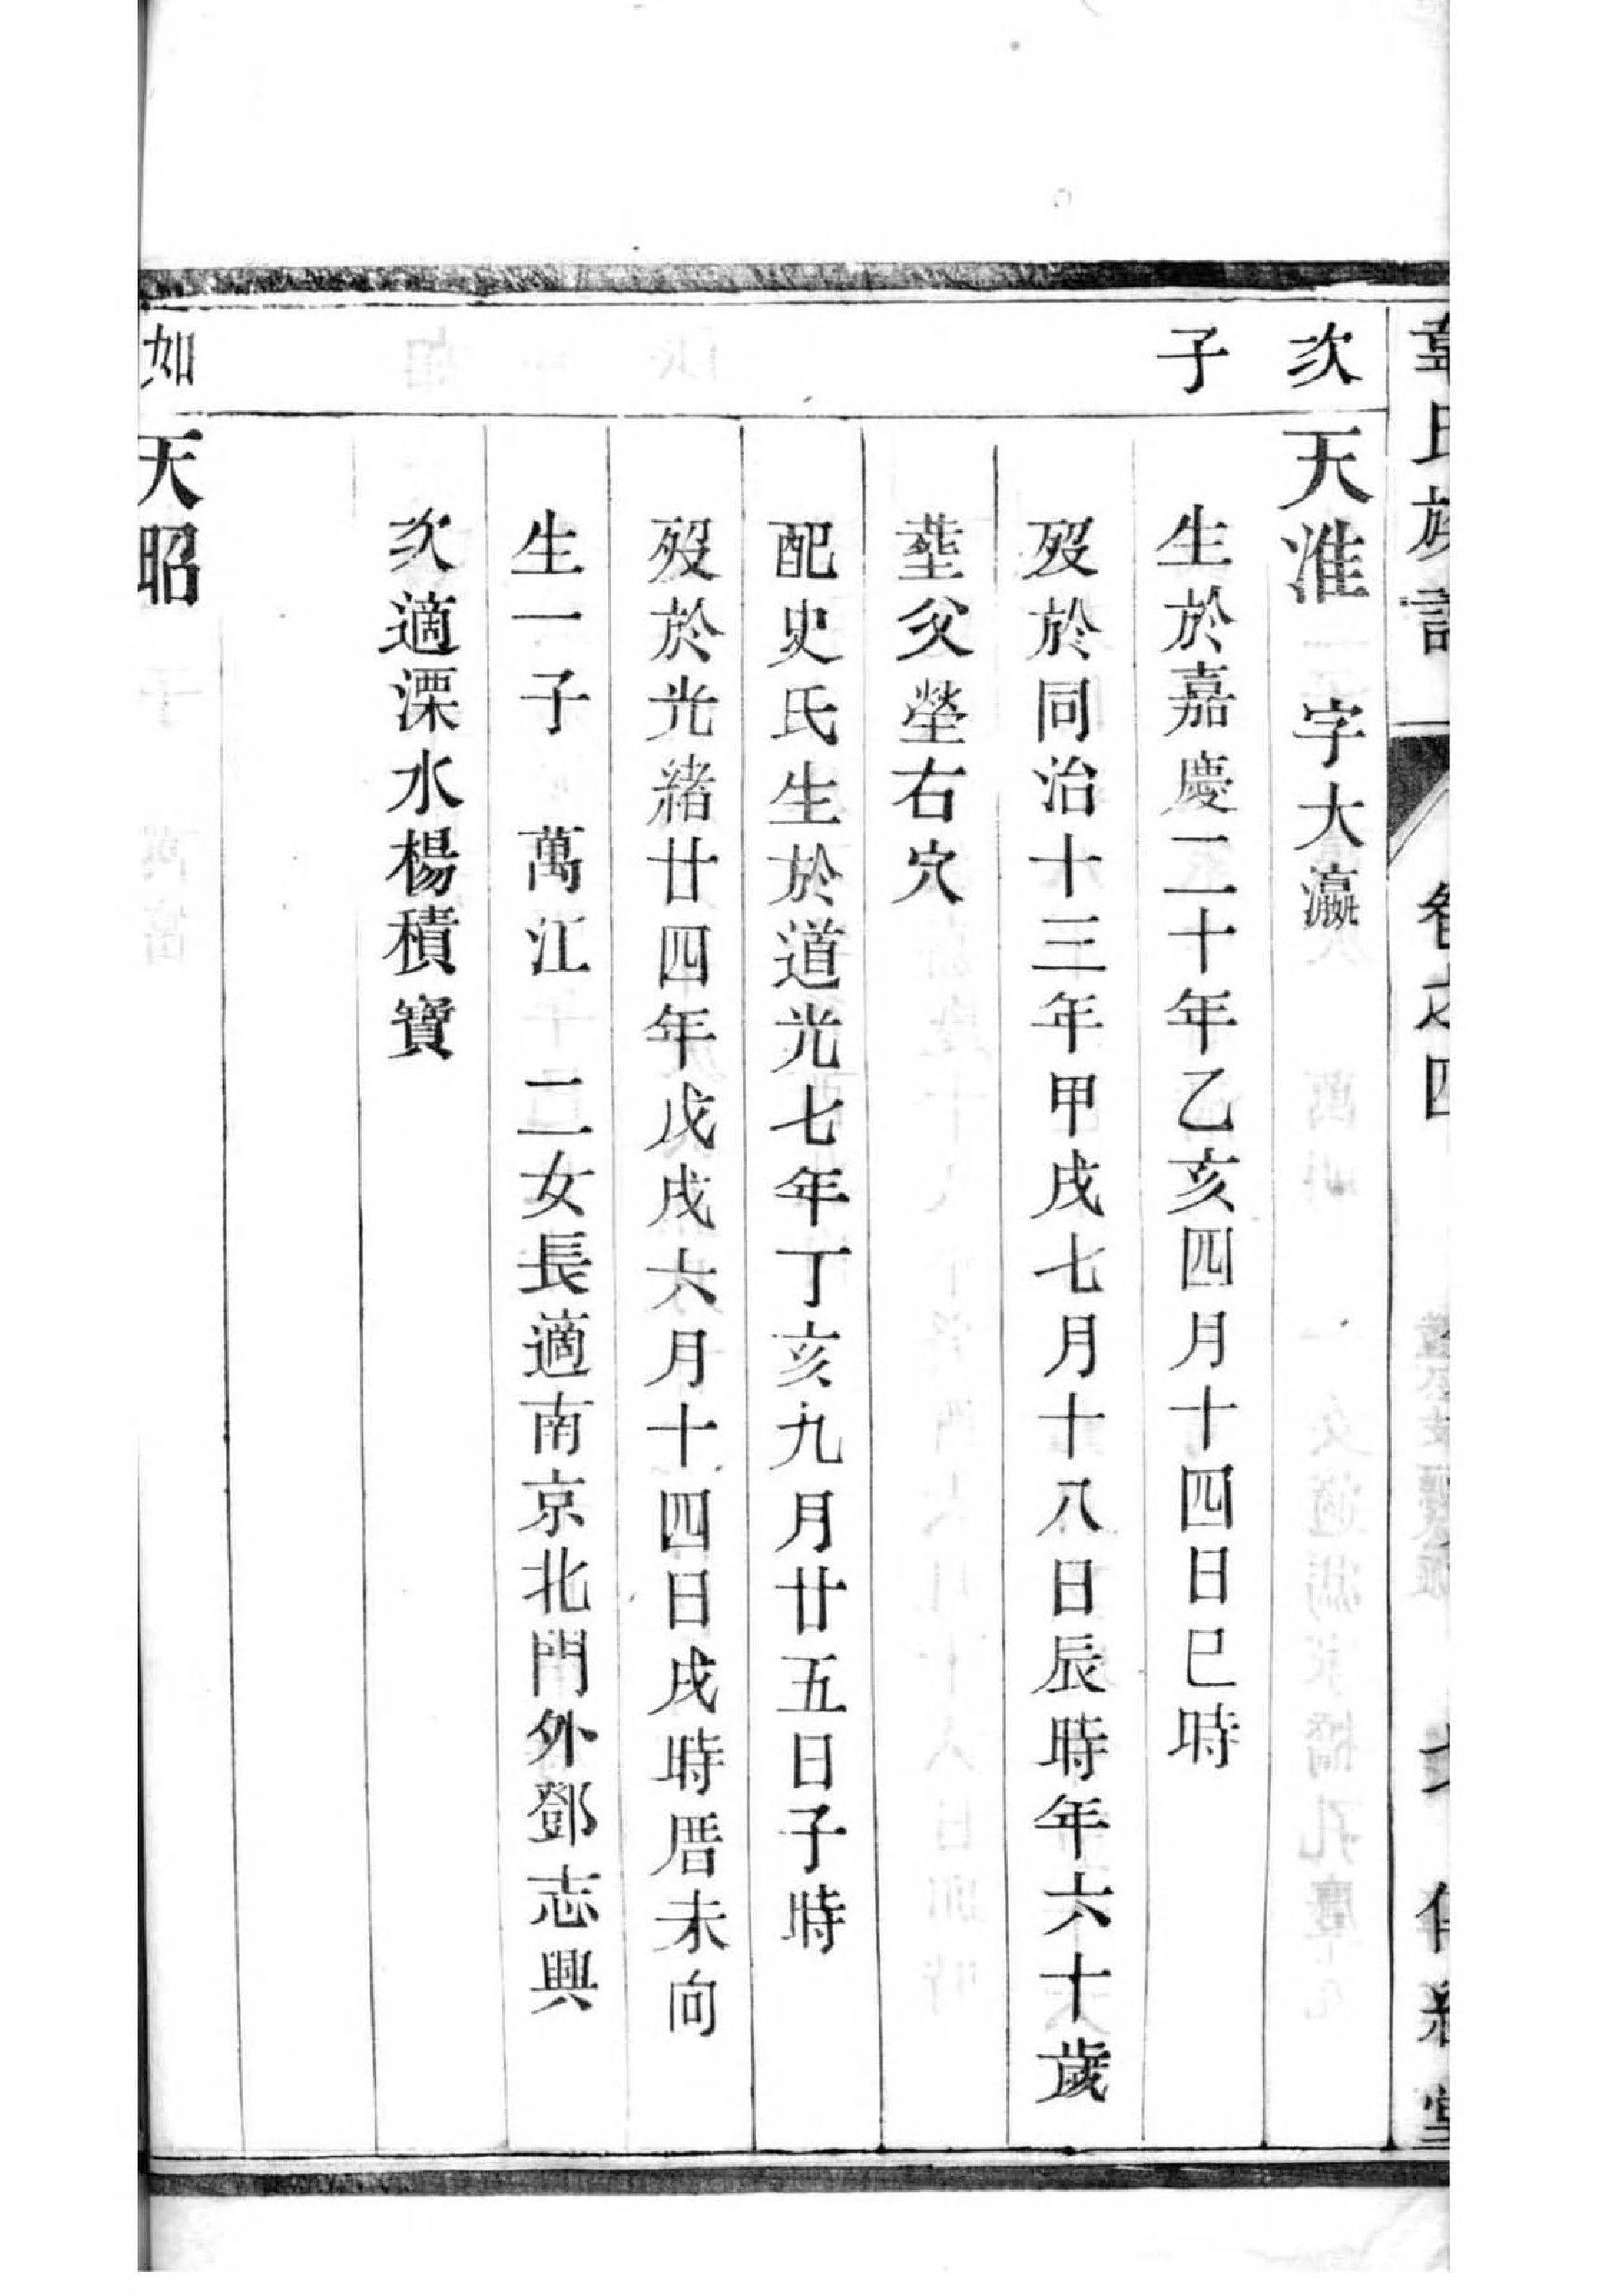 氏族譜 卷之四
次 天淮 字大瀛
子 生於嘉慶二十年乙亥四月十四日巳時
歿於同治十三年甲戌七月十八日辰時年六十歲
塟父塋右穴
配史氏生於道光七年丁亥九月廿五日子時
歿於光緒廿四年戊戌六月十四日戌時厝未向
生一子 萬江 二女長適南京北門外鄧志興
次適溧水楊積寶
如 天昭